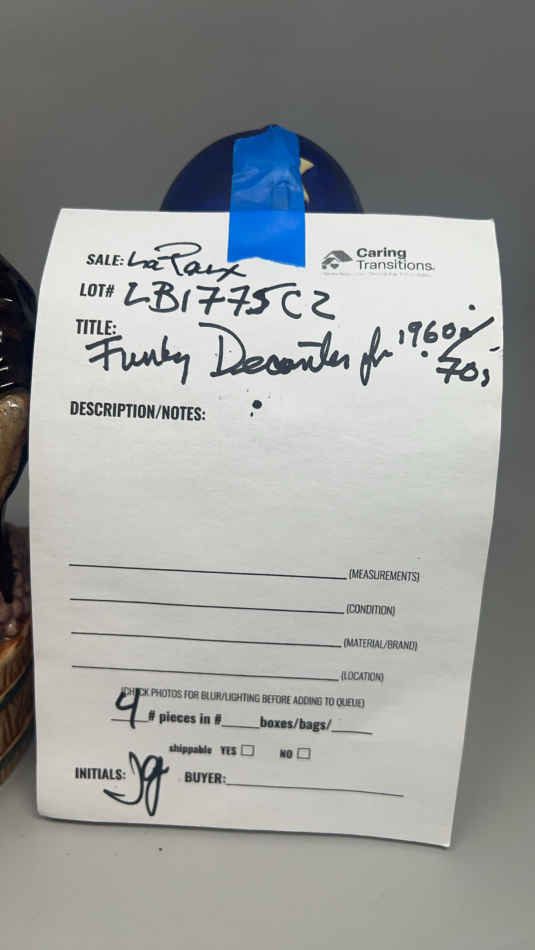 Caring
Transitions.
SALE: LaPaix
LOT# LB1775C2
TITLE:
Funky Decanters fr 1960s/
70s
DESCRIPTION/NOTES:
(MEASUREMENTS)
(CONDITION)
(MATERIAL/BRAND)
(LOCATION)
(CHECK PHOTOS FOR BLUR/LIGHTING BEFORE ADDING TO QUEUE)
4 # pieces in # boxes/bags/
shippable YES NO
INITIALS: BUYER: